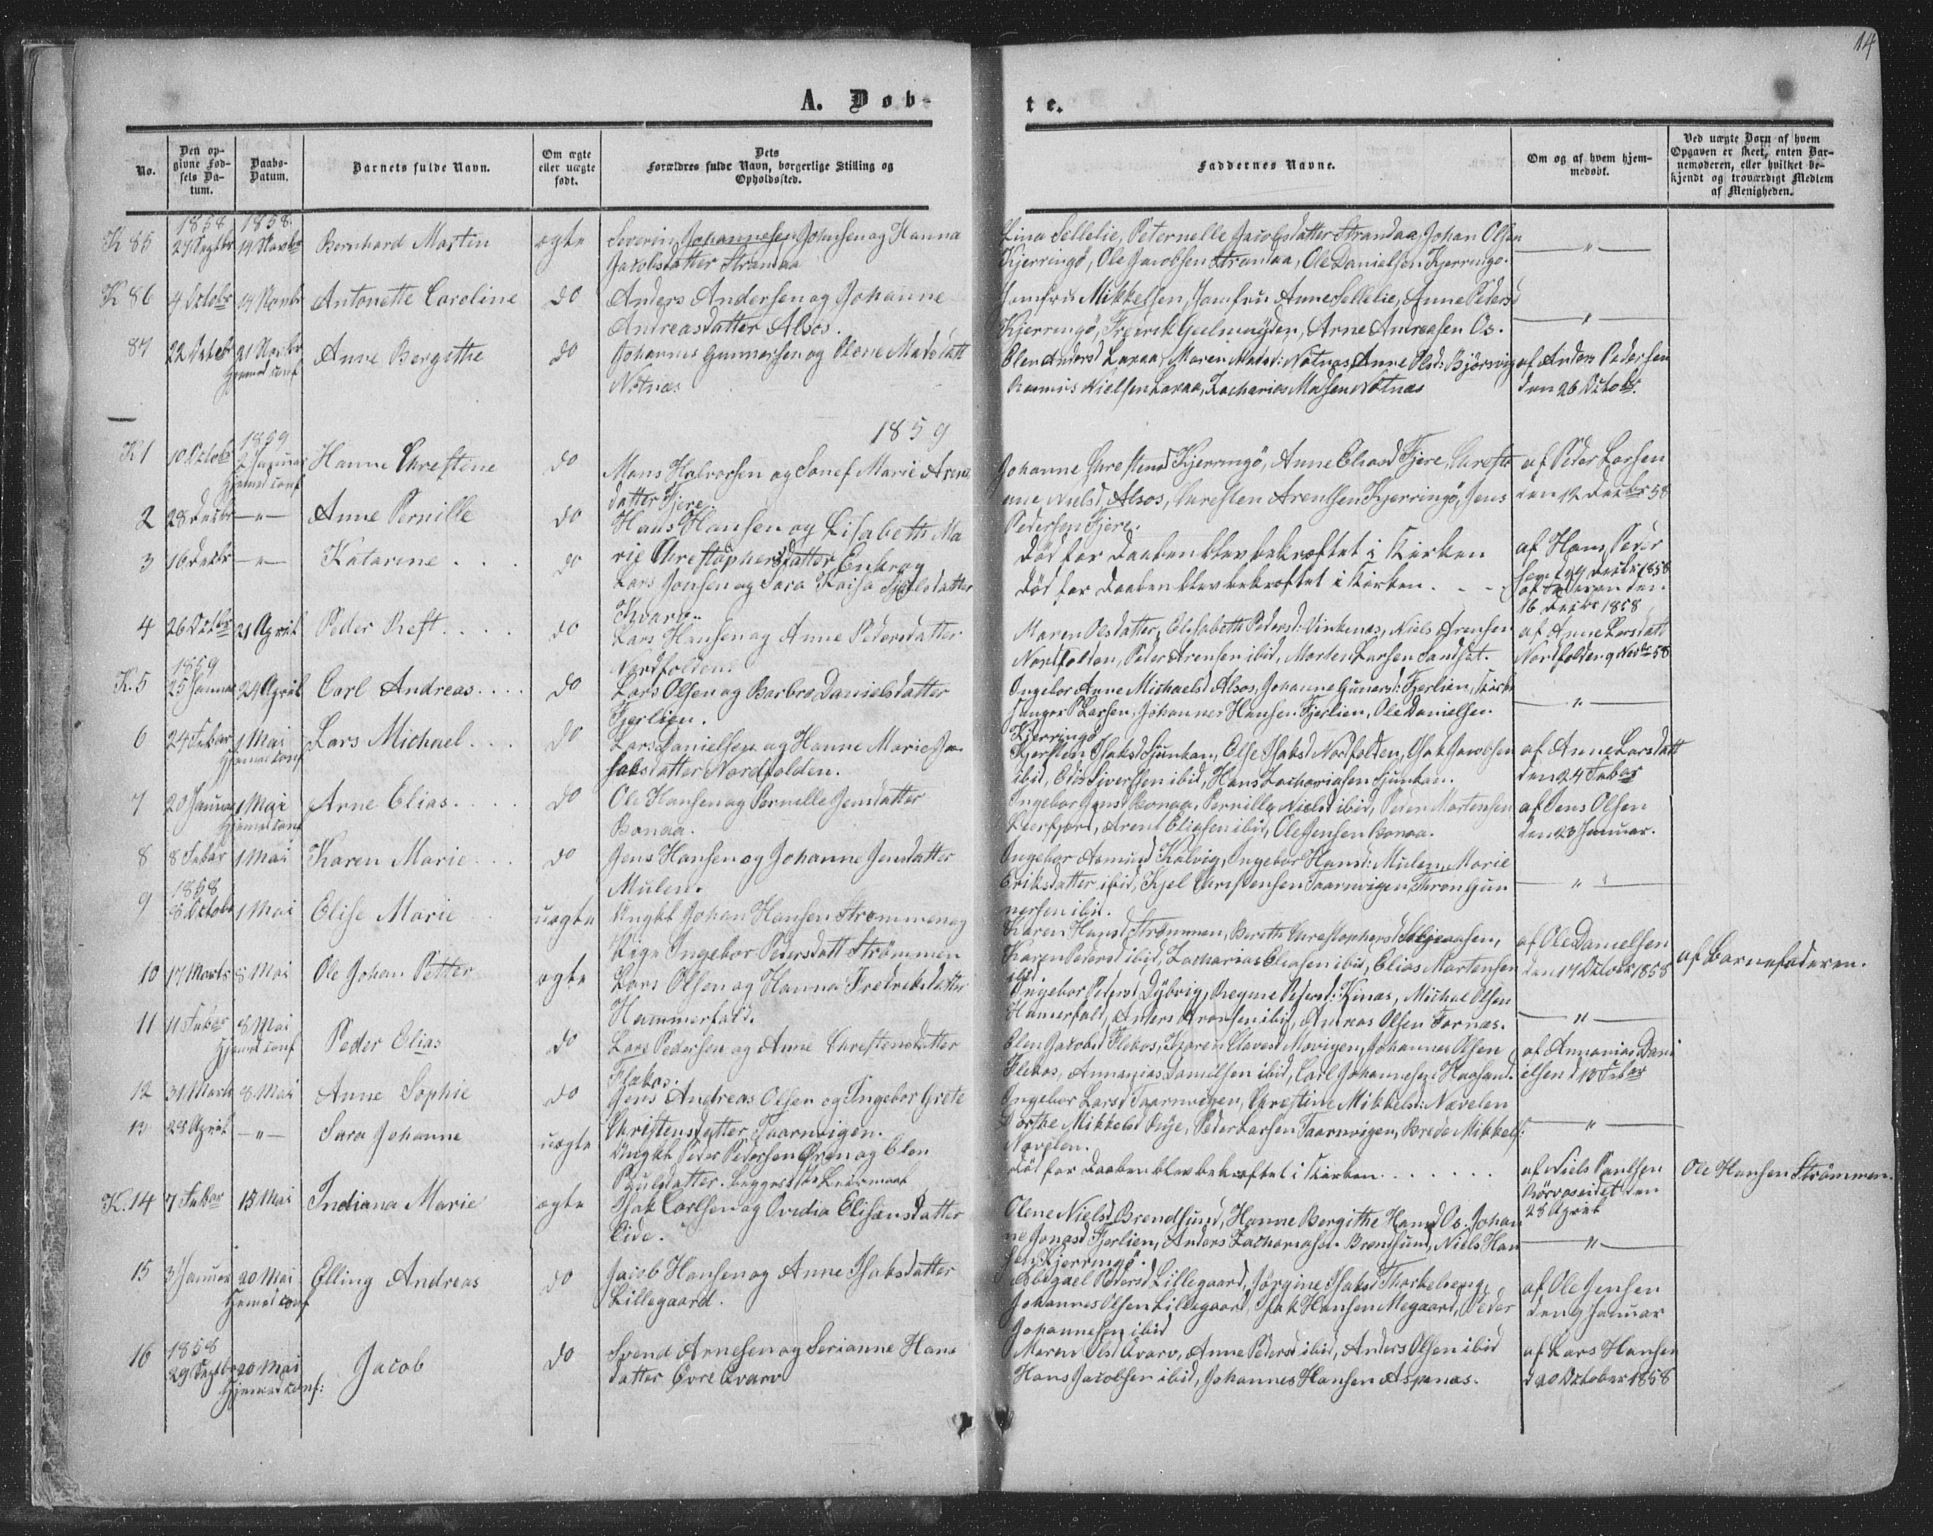 14
A. Døb-
te.
No.
Den op-
givne Fød-
sels Da-
tum.
Daabs-
Datum.
Barnets fulde Navn.
Om ægte
eller uægte
født.
Dets
Forældres fulde Navn, borgerlige Stilling og
Opholdssted.
Faddernes Navne.
Om og af hvem hjem-
medøbt.
Ved uægte Børn af hvem
Opgaven er skeet, enten Bar-
nemoderen, eller hvilket be-
kjendt og troværdigt Medlem
af Menigheden.
1858 1858
K 85 27 Septbr 14 Novbr Bernhard Morten ægte Severin Johannesen Johnsen og Hanna
Jacobsdatter Strandaa
Lina Sellelie, Peternelle Jacobsdatter Strandaa, Johan Olsen
Kjerringö, Ole Jacobsen Strandaa, Ole Danielsen Kjerringö. — " —
K 86 4 Octobr 14 Novbr Antonette Caroline do Anders Andersen og Johanne
Andreasdatter Alsos.
Jomfru Mikkelsen, Jomfru Anne Sellelie, Anne Pedersd
Kjerringö, Fredrik Arne Andreasen Os. — " —
87 22 Octobr 21 Novbr Anne Bergithe do Johannes Gunnarsen og Olene Madsdatt
Hjemed conf Notnæs
Elen Andersd Laxaa, Maren Madsd: Notnæs, Anne Olsd: Björsvig
Rasmus Nielsen Laxaa, Zacharias Madsen Notnæs
af Anders Pedersen
den 26 Octobr.
1859
1859
K 1 10 Octobr 2 Januar Hanne Chrestene do Mons Halvorsen og Marie Arens
Hjemed conf datter Fjere.
Johanne Chrestensd Kjerringö, Anne Eliasd Fjere, Chresti
ane Nielsd, Alsos, Chresten Arentsen Kjerringö, Jens
Pedersen Fjere.
af Peder Larsen
den 12 Decbr 58
2 28 Decbr — " — Anne Pernille do Hans Hansen og Elisabeth Ma
rie Chrestophersdatter
Död før Daaben blev bekræftet i Kirken
af Hans Peder
1858
3 16 Decbr — " — Katarine do Lars Jonsen og Sara Kaisa
Kvarv.
Död før Daaben blev bekræftet i Kirken.
af Faderen den
16 Decbr 1858
4 26 Octbr 21 April Peder Reft do Lars Hansen og Anne Pedersdatter
Nordfolden.
Maren Olsdatter, Elisabeth Pedersd: Vinkenæs, Niels Arensen
Nordfolden, Peder Arensen ibid, Morten Larsen Sandset.
af Anne Larsdatt
Nordfolden 9 Novbr 58
1859
K. 5 25 Januar 24 April Carl Andreas do Lars Olsen og Barbro Danielsdatter
Fjerlien.
Ingebor Anne Michaelsd Alsos, Johanne Gunersd: Fjerlien, Kirke
sanger P Larsen, Johannes Hansen Fjerlien, Ole Danielsen
Kjerringö — " —
6 24 Febar 1 Mai Lars Michael do Lars Danielsen og Hanne Marie Ja
Hjemed conf kobsdatter Nordfolden.
Kjersten Isaksd Sjunkan, Else Isaksd Norfolden, Isak Jacobsen
ibid, Siversen ibid, Hans Zachariasen Sjunkan.
af Anne Larsdatt
den 24 Febar
7 20 Januar 1 Mai Arne Elias do Ole Hansen og Pernille Jensdatter
Hjemed conf Bonaa.
Ingebor Jensd Bonaa, Pernille Nielsd ibid, Peder Mortensen
Leerfjord, Arent Eliasen ibid, Ole Jensen Bonaa.
af Jens Olsen
den 23 Januar.
8 8 Febar 1 Mai Karen Marie do Jens Hansen og Johanne Jensdatter
Mulen.
Ingebor Asmund Kalvig, Ingebor Hansd: Mulen, Marie
Eriksdatter ibid, Kjel Chrestensen Taarnvigen, Thron Gun
nersen ibid. — " —
1858
9 8 Octobr 1 Mai Elise Marie uægte Ungkl Johan Hansen Strømmen og
Pige Ingebor Pedersdatt Strömmen
Karen Hansd Strömmen, Bereth Chrestophersd
Karen Pedersd ibid, Zacharias Eliasen ibid, Elias Mortensen
ibid.
af Ole Danielsen
den 17 Octobr 1858
af Barnefaderen.
10 17 Marts 8 Mai Ole Johan Petter ægte Lars Olsen og Hanna Fredriksdatter
Hammerfald.
Ingebor Pedersd Dybvig, Regine Pedersd: Kinæs, Michel Olsen
Hamerfald, Anders Aronsen ibid, Andreas Olsen Fornæs. — " —
11 11 Febar 8 Mai Peder Elias do Lars Pedersen og Anne Chrestensdatter
Hjemed conf Flækos.
Elen Jacobsd Flekos, Karen Olavesd Movigen, Johannes Olsen
Flekos, Annanias Danielsen ibid, Carl Johannesen Haasand.
af Annanias Dani
elsen d 18 Febar
12 31 Marts 8 Mai Anne Sophie do Jens Andreas Olsen og Ingebor Grete
Christensdatter Taarnvigen.
Ingebor Larsd Taarnvigen, Chrestine Mikkelsd: Nævelen
Dorthe Mikkelsd Røye, Peder Larsen Taarnvigen, Brede Mikkels:
Nævelen. — " —
13 28 April — " — Sara Johanne uægte Ungkl Peder Pedersen Ören og Elen
Poulsdatter.
Död før Daaben blev bekræftet i Kirken
af Niels Paulsen
Rörvaseidet den
28 April
Ole Hansen Strømmen.
K. 14 7 Febar 15 Mai Indiana Marie ægte Isak Carlsen og Ovedia Eliseusdatter
Eide.
Olene Nielsd Brendsund, Hanne Bergithe Hansd Os. Johan
ne Jonasd Fjerlien, Anders Zachariasn Brendsund, Niels Han
sen Kjerringö. — " —
15 3 Januar 20 Mai Elling Andreas do Jacob Hansen og Anne Isaksdatter
Hjemed conf Lillegaard.
Abegael Pedersd Lillegaard, Jørgine Isaksd Thorkelseng,
Johannes Olsen Lillegaard, Isak Hansen Megaard, Peder
Johannesen ibid
af Ole Jensen
den 9 Januar
1858
16 29 Septbr 20 Mai Jacob do Svend Arnesen og Serianne Hans
Hjemed conf: datter Övre Qvarv
Maren Olsd Qvarv, Anne Pedersd ibid, Anders Olsen ibid
Hans Jacobsen ibid, Johannes Hansen Aspenæs.
af Lars Hansen
d 20 October 1858